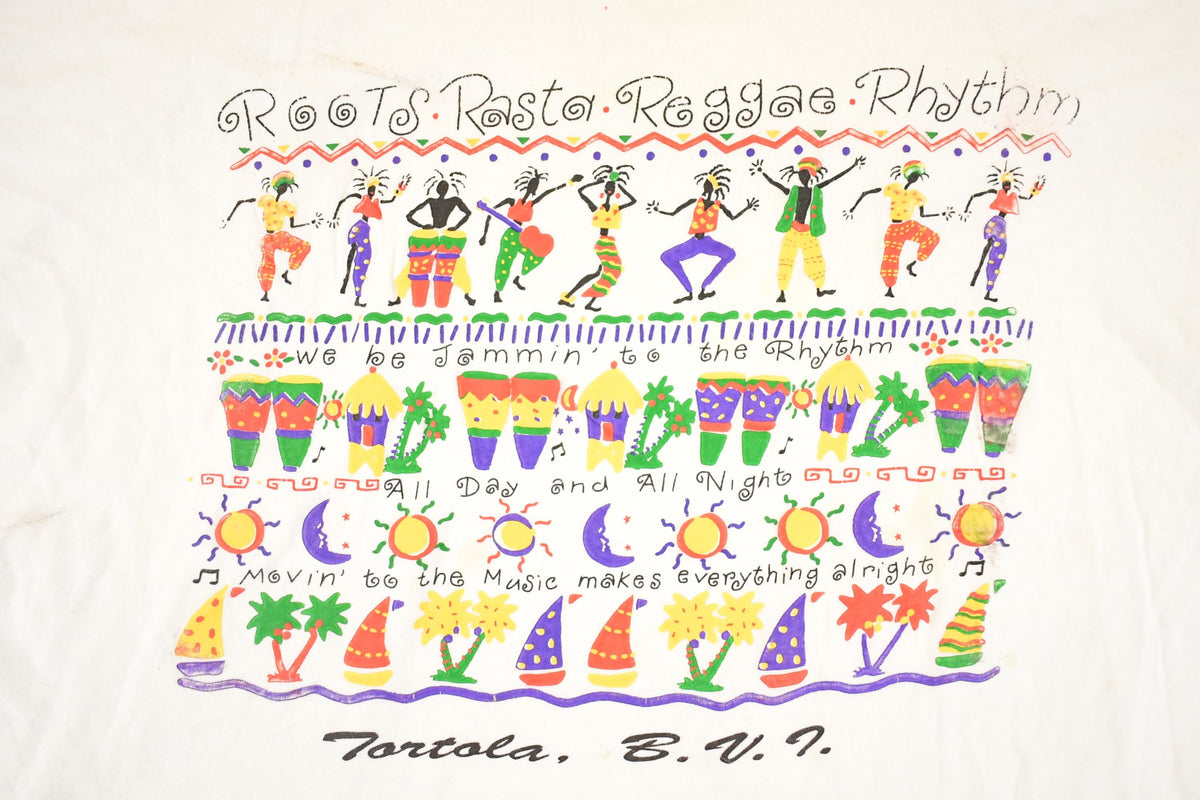 Roots · Rasta · Reggae · Rhythm
we be Jammin' to the Rhythm
All Day and All Night
Movin' to the Music makes everything alright
Tortola, B.V.I.